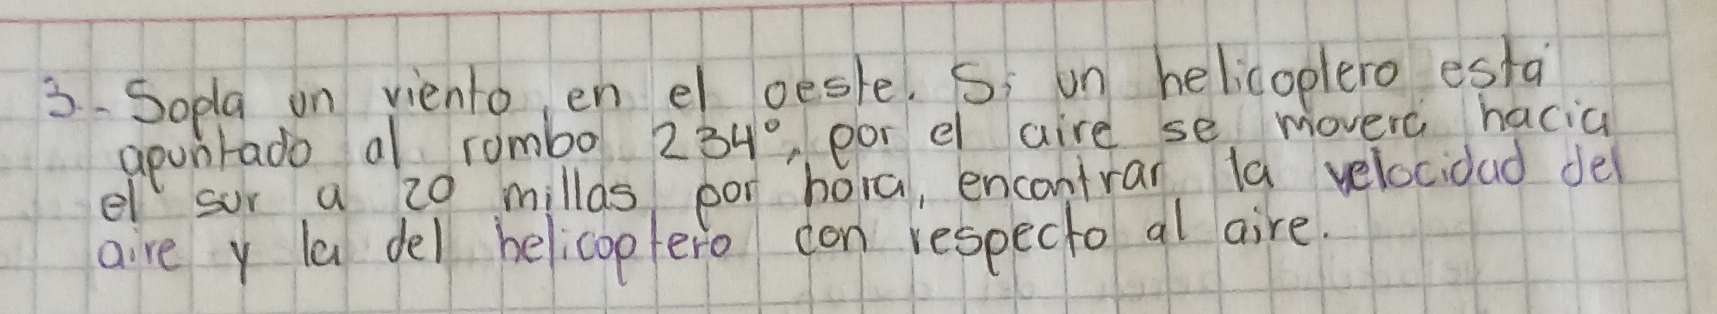 3.- Sopla un viento en el oeste. Si un helicoptero está
apuntado al rumbo 234°, por el aire se moverá hacia
el sur a 20 millas por hora, encontrar la velocidad del
aire y la del helicoptero con respecto al aire.